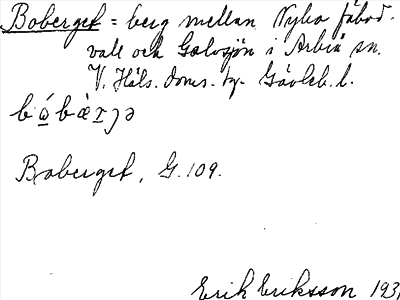 Boberget = berg mellan Nybo fäbod-
vall och Galvsjön i Arbrå sn.
V. Häls. doms. hg. Gävleb. l.
Boberget, G. 109.
Erik Eriksson 193